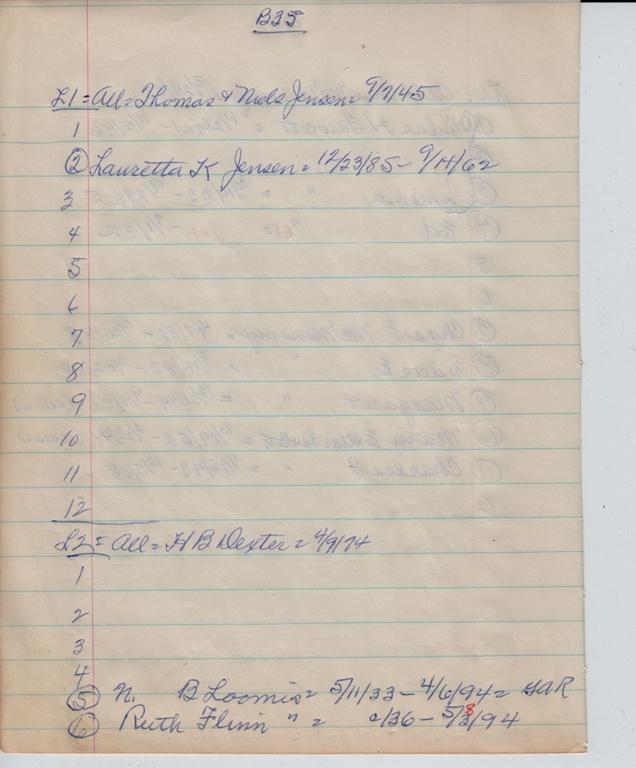 B35
L1 = All = Thomas & Niels Jensen = 9/7/45
1
② Lauretta K Jensen = 12/23/85 - 9/14/62
3
4
5
6
7
8
9
10
11
12
L2 = All = H B Dexter = 4/9/74
1
2
3
4
⑤ N. B Loomis = 5/11/33 - 4/6/94 = GAR
⑥ Ruth Flinn " = c/36 - 5/8/94